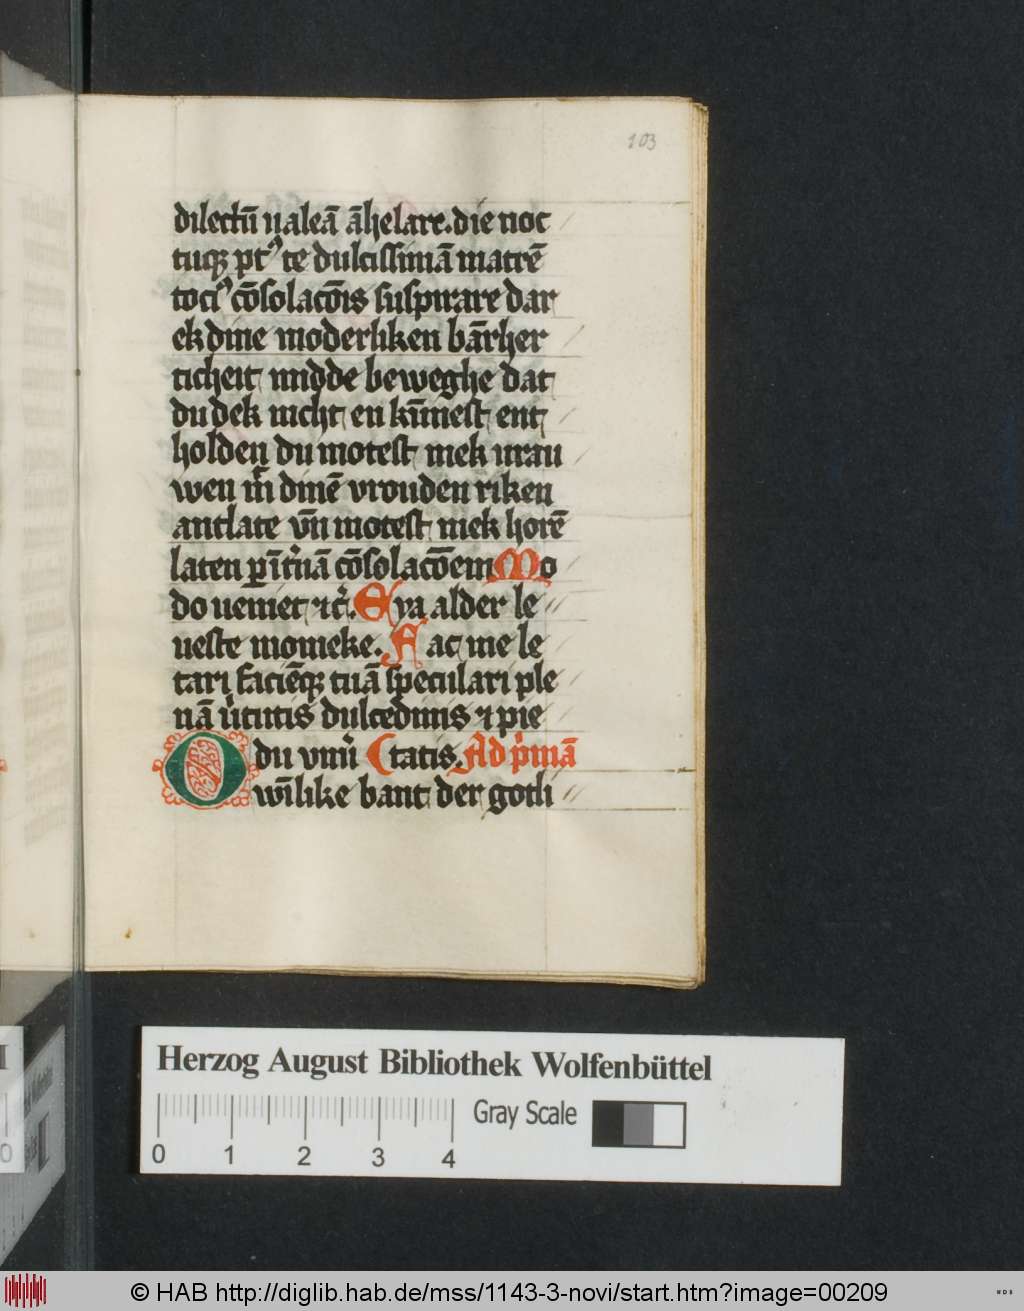 103
dilectū ualeā āhelare. die noc
tuqꝫ pt⁹ te dulcissimā matrē
toci⁹ cōsolacōis suspirare dar
ek dine moderliken bārher
ticheit midde beweghe dat
du dek nicht en kūnest ent
holden du motest mek urau
wen m̄ dinē vrouden riken
antlate vn̄ motest mek horē
laten cōsolacōem Mo
do ueniet ⁊ c̄. Eya alder le
ueste momeke. Fac me le
tari faciēqꝫ tuā speculari ple
nā dulcedinis ⁊ pie
O du tatis. Ad p̄mā
wīlike bant der gotli
Herzog August Bibliothek Wolfenbüttel
Gray Scale
0 1 2 3 4
© HAB http://diglib.hab.de/mss/1143-3-novi/start.htm?image=00209